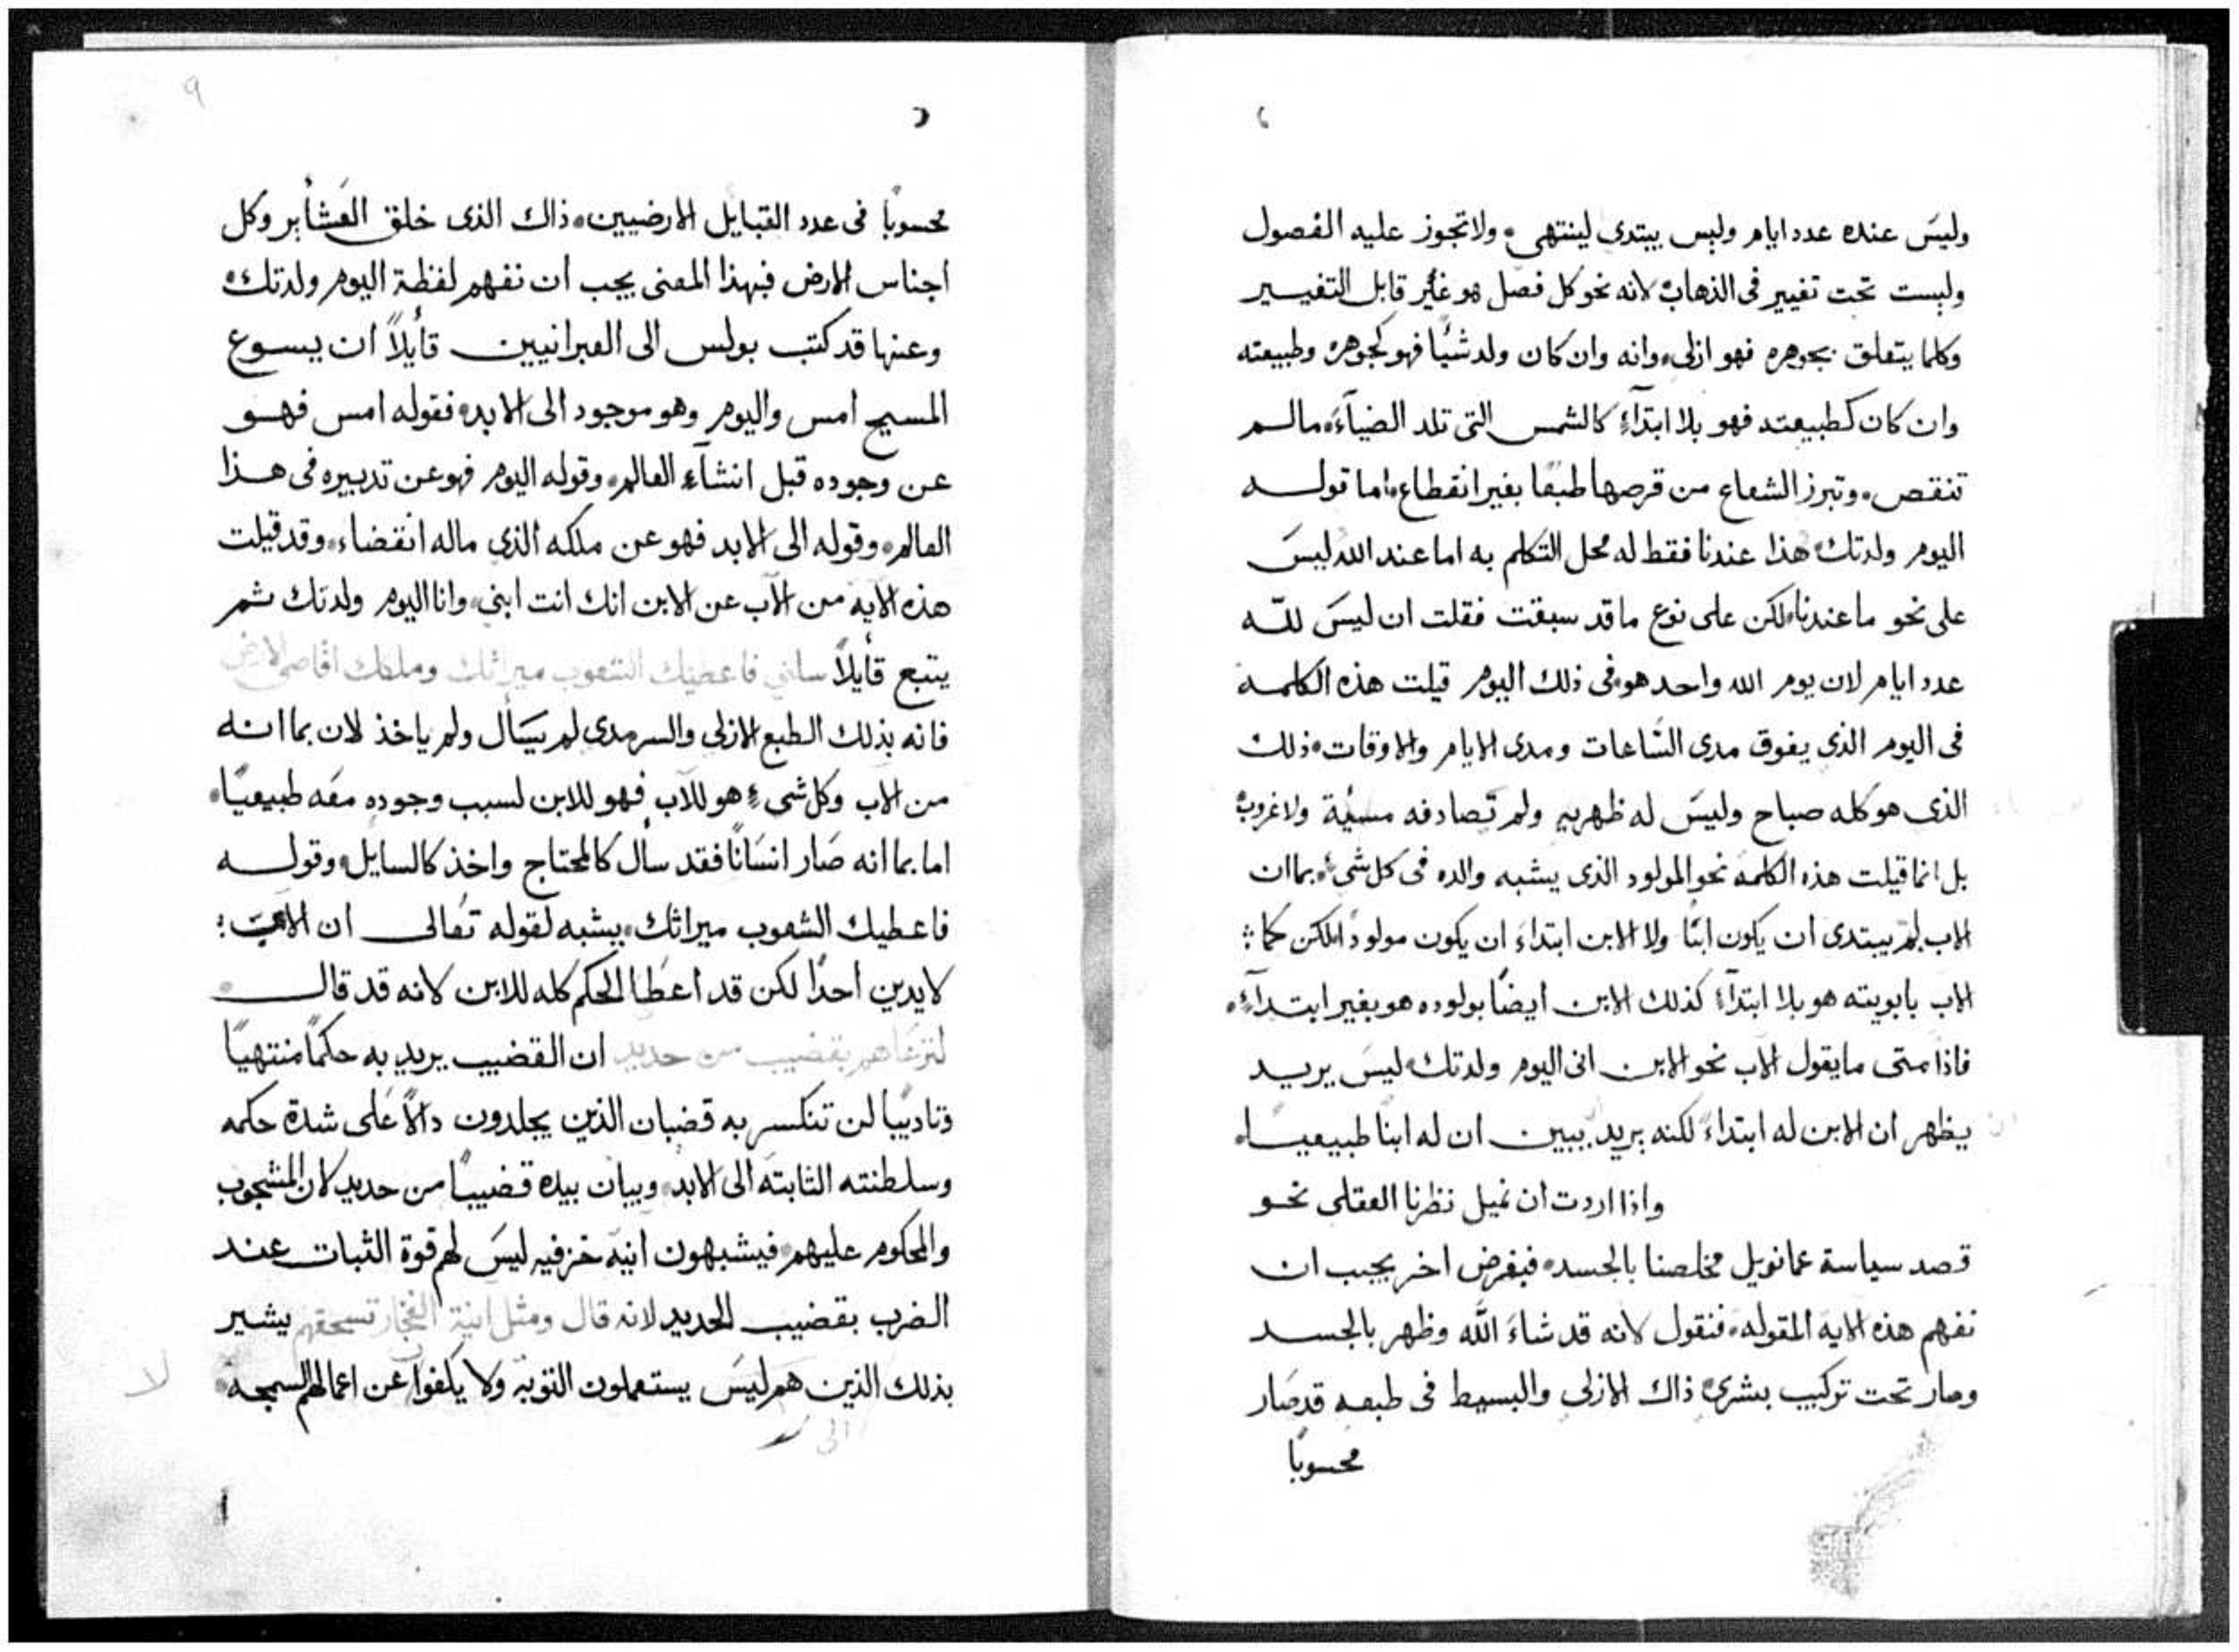 وليسَ عنده عدد ايام وليس يبتدى لينتهى، ولاتجوز عليه الفصول
وليست تحت تغيير فى الذهاب، لانه نحو كل فصل هو غير قابل التغيير
وكلما يتعلق بجوهره فهو ازلى، وانه وان كان ولد شيًا فهو كجوهره وطبيعته
وان كان كطبيعته فهو بلا ابتدآءٍ كالشمس التى تلد الضيآءَ، مالم
تنقص، وتبرز الشعاع من قرصها طبعًا بغير انقطاع، اما قوله
اليوم ولدتك، هذا عندنا فقط له محل التكلم به اما عند الله ليسَ
على نحو ما عندنا، لكن على نوع ما قد سبقت فقلت ان ليسَ للّه
عدد ايام لان يوم الله واحد هو، فى ذلك اليوم قيلت هذه الكلمة
فى اليوم الذى يفوق مدى السَّاعات ومدى الايام والاوقات، ذلك
الذى هو كله صباح وليسَ له ظهريه ولم تصادفه مسيَّة ولاغروب،
بل انما قيلت هذه الكلمة نحو المولود الذى يشبه والده فى كل شىء، بما ان
الاب لم يبتدى ان يكون ابنًا ولا الابن ابتداءَ ان يكون مولودًا، لكن كما:
الاب بابويته هو بلا ابتدآءٍ كذلك الابن ايضًا بولوده هو بغير ابتدآءٍ،
فاذا متى ما يقول الآب نحو الابن انى اليوم ولدتك، ليسَ يريد
يظهر ان الابن له ابتداء، لكنه يريد يبين ان له ابنًا طبيعيًا،
واذا اردت ان نميل نظرنا العقلى نحو
قصد سياسة عمانويل مخلصنا بالجسد، فبفرض اخر يجب ان
نفهم هذه الاية المقوله، فنقول لانه قد شاءَ اللّه وظهر بالجسد
وصار تحت تركيب بشرى، ذاك الازلى والبسيط فى طبعه قد صَار
محسوبًا
٩
محسوبًا فى عدد القبايل الارضيين، ذاك الذى خلق العَشأير وكل
اجناس الارض فبهذا المعنى يجب ان نفهم لفظة اليوم ولدتك،
وعنها قد كتب بولس الى العبرانيين قأيلًا ان يسوع
المسيح امس واليوم وهو موجود الى الابد، فقوله امس فهو
عن وجوده قبل انشآءِ العالم، وقوله اليوم فهو عن تدبيره فى هذا
العالم، وقوله الى الابد فهو عن ملكه الذى ماله انقضاء، وقد قيلت
هذه الآية من الآب عن الابن انك انت ابنى، وانا اليوم ولدتك ثم
يتبع قأيلًا سلنى فاعطيك الشعوب ميراثك وملكك اقاصى الارض
فانه بذلك الطبع الازلى والسرمدى لم يسَأل ولم ياخذ لان بما انه
من الآب وكل شىءٍ هو للآب فهو للابن لسبب وجوده معَه طبيعيًا،
اما بما انه صَار انسَانًا فقد سأل كالمحتاج واخذ كالسايل، وقوله
فاعطيك الشعوب ميراثك، يشبه لقوله تعَالى ان الاب:
لايدين احدًا لكن قد اعطَا الحكم كله للابن لانه قد قال
لترعاهم بقضيب من حديد ان القضيب يريد به حكمًا منتهيًا
وتاديبًا لن تنكسر به قضبان الذين يجلدون دالًا عَلى شدة حكمه
وسلطنته الثابتة الى الابد، وبيان بيده قضيبًا من حديد لان المشجوب
والمحكوم عليهم، فيشبهون انيَة خزفيه ليسَ لهم قوة الثبات عند
الضرب بقضيب الحديد لانه قال ومثل انية الفخار تسحقهم يشير
بذلك الذين هم ليسَ يستعملون التوبة ولا يكفوا عن اعمالهم السمجة،